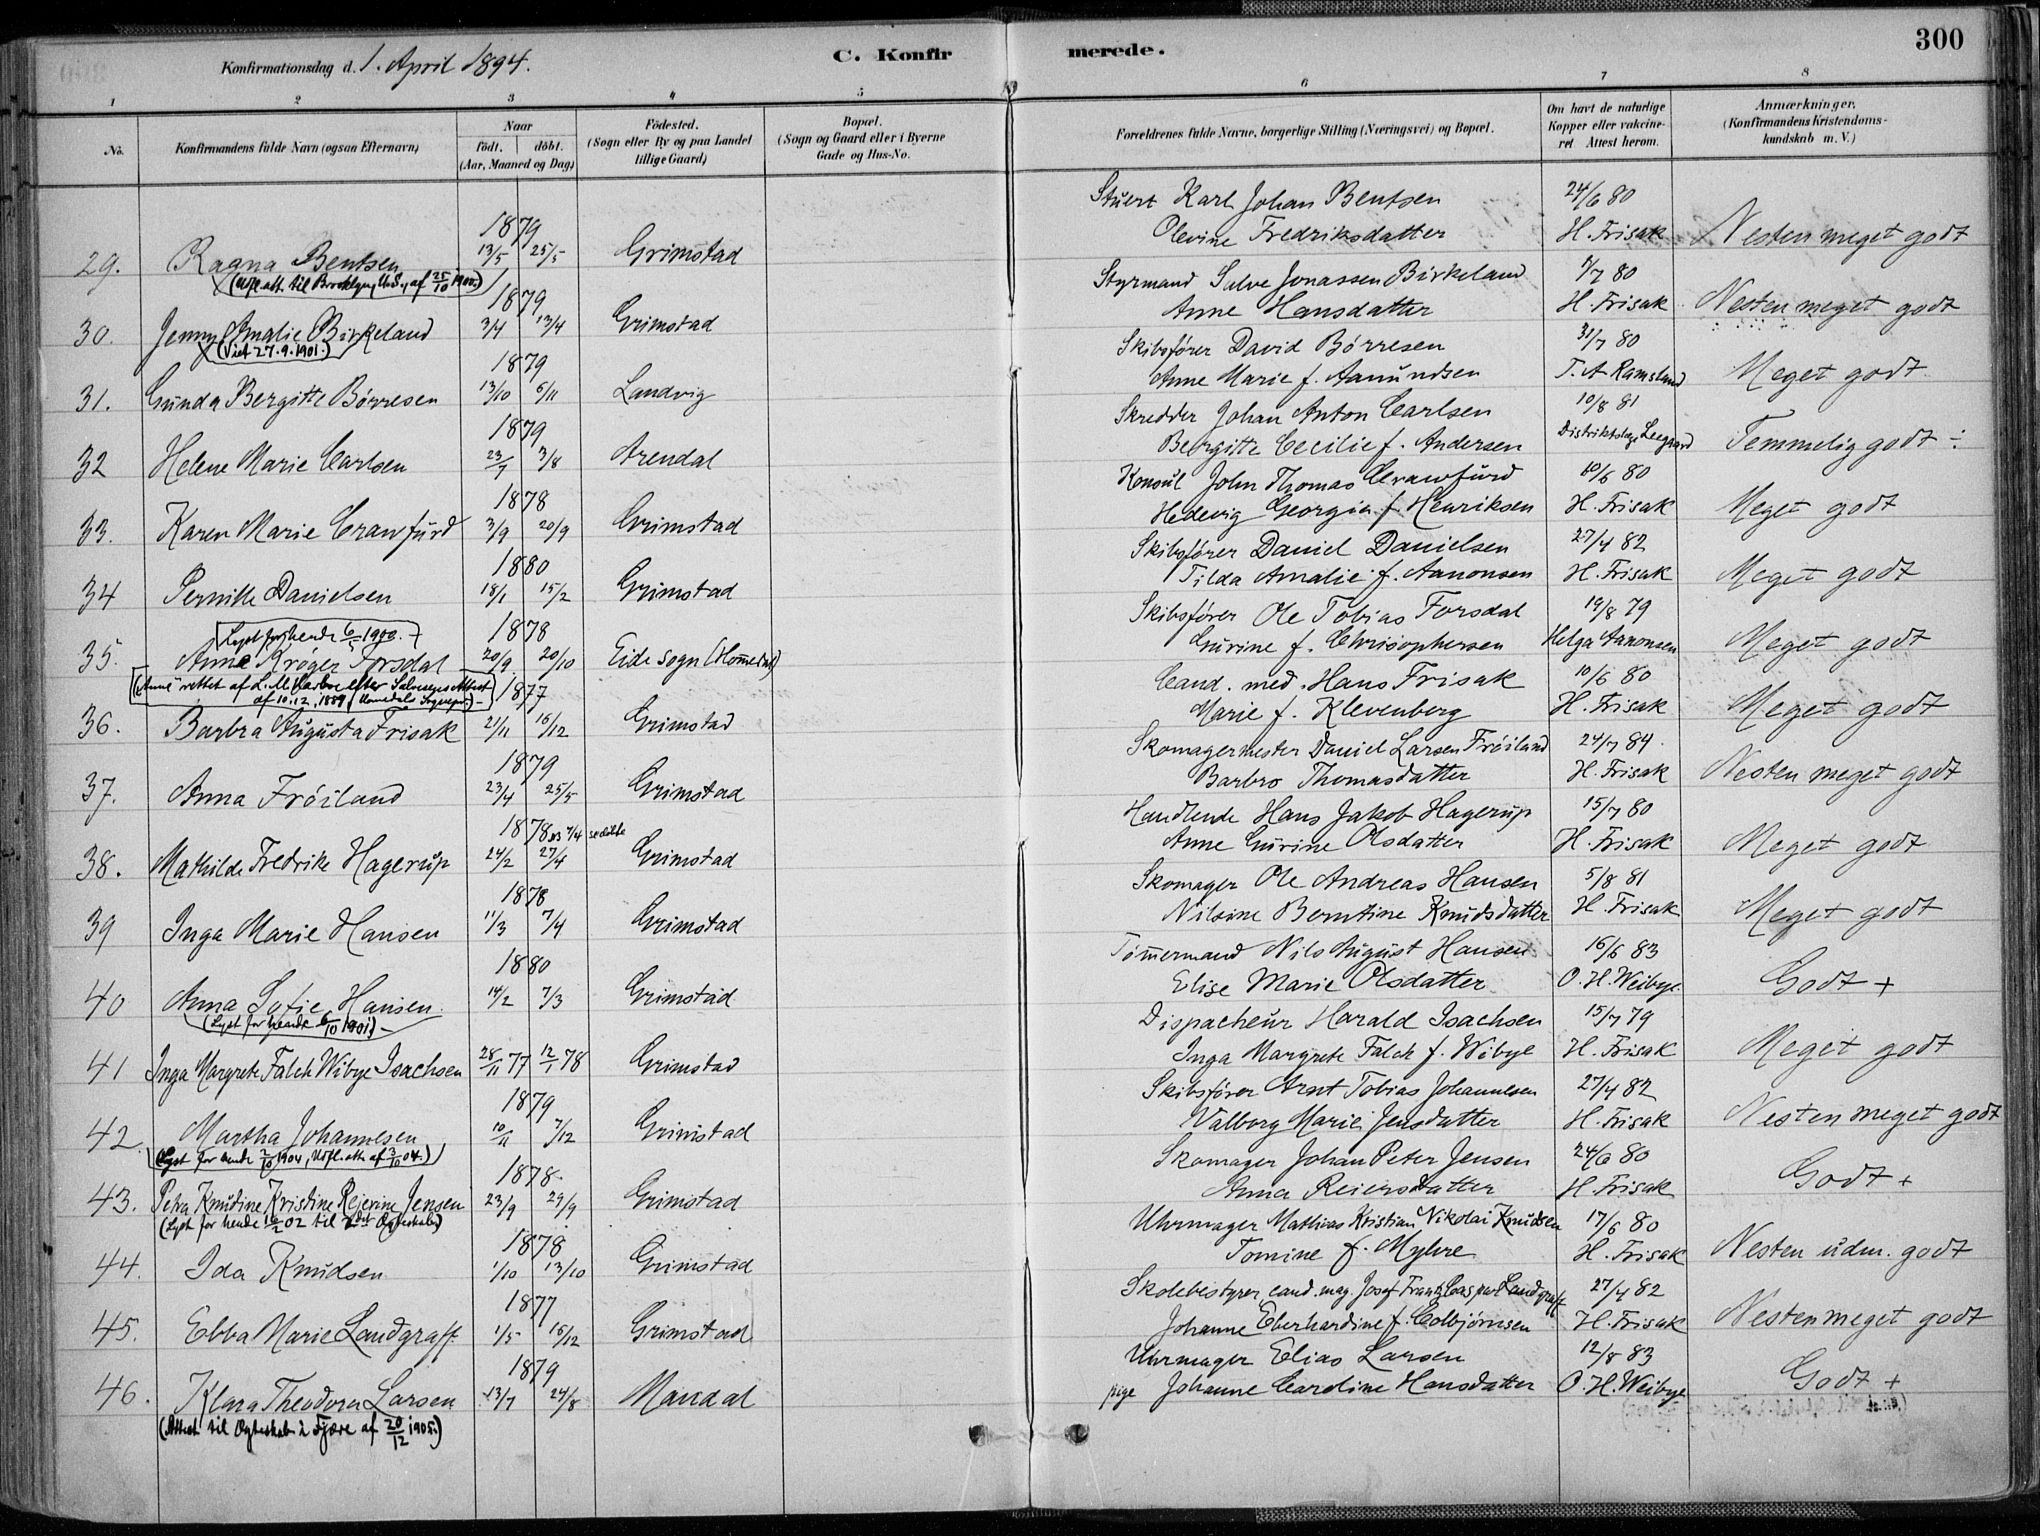 Konfirmationsdag d. 1. April 1894.
C. Konfirmerede.
300
1 2 3 4 5 6 7 8
No.
Konfirmandens fulde Navn (ogsaa Efternavn)
Naar
født. døbt.
(Aar, Maaned og Dag)
Fødested.
(Sogn eller By og paa Landet
tillige Gaard)
Bopæl.
(Sogn og Gaard eller i Byerne
Gade og Hus-No.
Forældrenes fulde Navne, borgerlige Stilling (Næringsvei) og Bopæl.
Om havt de naturlige
Kopper eller vakcine-
ret Attest herom.
Anmærkninger.
(Konfirmandens Kristendoms-
kundskab m. V.)
1879 Stuert Karl Johan Bentsen 24/6 80
29. Ragna Bentsen 13/5 25/5 Grimstad Olevine Fredriksdatter H. Frisak Nesten meget godt
(Udfl. att. til Brooklyn, U.S., af 25/10 1900.)
1879 Styrmand Salve Jonassen Birkeland 1/7 80
30. Jenny Amalie Birkeland 3/4 13/4 Grimstad Anne Hansdatter H. Frisak Nesten meget godt
(Viet 27.9.1901.)
1879 Skibsfører David Børresen 31/7 80
31. Gunda Bergitte Børresen 13/10 6/11 Landvig Anne Marie f. Aamundsen T. A Ramsland Meget godt
1879 Skredder Johan Anton Carlsen 10/8 81
32 Helene Marie Carlsen 23/7 3/8 Arendal Bergitte Cecilie f. Andersen Distriktslæge Leegaard Temmelig godt ÷
1878 Konsul John Thomas Crawfurd 10/6 80
33. Karen Marie Crawfurd 3/9 20/9 Grimstad Hedevig Georgia f. Henriksen H. Frisak Meget godt
1880 Skibsfører Daniel Danielsen 27/4 82
34 Pernille Danielsen 18/1 15/2 Grimstad Tilda Amalie f. Aanonsen H. Frisak Meget godt
Lyst for hende 6/5 1900.
1878 Skibsfører Ole Tobias Forsdal 19/8 79
35. Anne Krøger Forsdal 20/9 20/10 Eide sogn (Homedal) Gurine f. Chrisophersen Helga Aanonsen Meget godt
("Anne" rettet af L. M. efter Attest
af 10.12.1889 (Homedals Sogn
1877 Cand. med. Hans Frisak 10/6 80
36. Barbra Augusta Frisak 21/11 16/12 Grimstad Marie f. Klevenberg H. Frisak Meget godt
1879 Skomagermester Daniel Larsen Frøiland 24/7 84.
37. Anna Frøiland 23/4 25/5 Grimstad Barbro Thomasdatter H. Frisak Nesten meget godt
1878 Handlende Hans Jakob Hagerup 15/7 80
38. Mathilde Fredrike Hagerup 24/2 27/4 Grimstad Anne Gurine Olsdatter H. Frisak Meget godt
1878 Skomager Ole Andreas Hansen 5/8 81
39 Inga Marie Hansen 11/3 7/4 Grimstad Nilsine Berntine Knudsdatter H. Frisak Meget godt
1880 Tømmermand Nils August Hansen 16/6 83
40 Anna Sofie Hansen. 14/2 7/3 Grimstad Elise Marie Olsdatter O. H. Weibye Godt +
(Lyst for hende 6/10 1901)
Dispacheur Harald Isachsen 15/7 79
41 Inga Margrete Falch Wibye Isachsen 28/11 77 12/1 78 Grimstad Inga Margrete Falch f. Wibye H. Frisak Meget godt
1879 Skibsfører Arnt Tobias Johannesen 27/4 82
42. Martha Johannesen 10/11 7/12 Grimstad Valborg Marie Jensdatter H. Frisak Nesten meget godt
(Lyst for hende 2/10 1904, Udfl. att. af 3/10 04.)
1878 Skomager Johan Peter Jensen 24/6 80
43. Petra Knudine Kristine Reierine Jensen 23/9 29/9 Grimstad Anna Reiersdatter H. Frisak Godt +
(Lyst for hende 16/2 02 til 2det Ægteskab)
1878 Uhrmager Mathias Kristian Nikolai Knudsen 17/6 80
44. Ida Knudsen 1/10 13/10 Grimstad Tomine f. Myhre H. Frisak Nesten udm. godt
1877 Skolebestyrer, cand. mag. Josef Frantz Caspar Landgraff 27/4 82
45. Ebba Marie Landgraff 1/5 16/12 Grimstad Johanne Eberhardine f. Colbjørnsen H. Frisak Nesten meget godt
1879 Uhrmager Elias Larsen 12/8 83
46. Klara Theodora Larsen 13/7 24/8 Mandal pige Johanne Caroline Hansdatter O. H. Weibye Godt +
(Attest til Ægteskab i Fjære af 20/12 1905.)